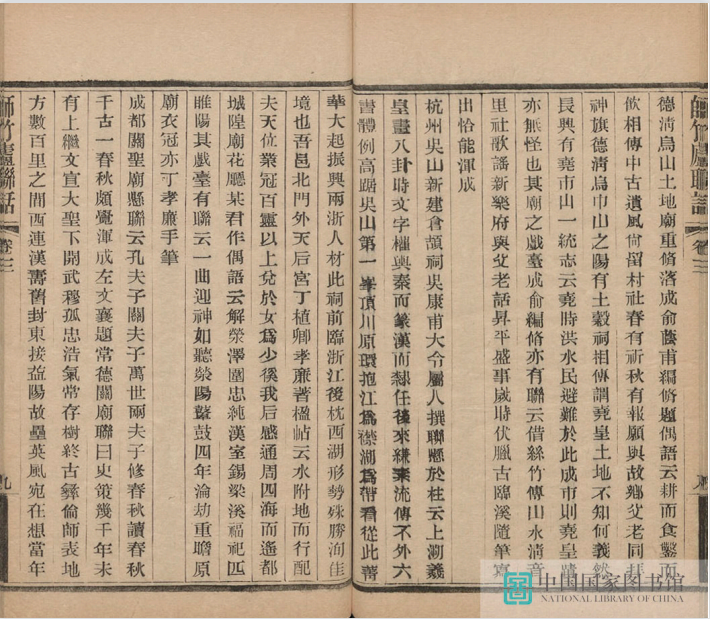 師竹廬聯話 卷三
德清烏山土地廟重脩落成俞蔭甫編脩題偶語云耕而食鑿而
飲相傳中古遺風尚留村社春有祈秋有報願與故鄉父老同拜
神旗德清烏巾山之陽有土穀祠相傳謂堯皇土地不知何義然
長興有堯市山一統志云堯時洪水民避難於此成市則堯皇蹟
亦無怪也其廟之戲臺成俞編脩亦有聯云借絲竹傳山水清音
里社歌謠新樂府與父老話昇平盛事歲時伏臘古臨溪隨筆寫
出恰能渾成
杭州吳山新建倉頡祠吳康甫大令屬人撰聯懸於柱云上溯羲
皇畫八卦時文字權輿秦而篆漢而隸任後來縑素流傳不外六
書體例高踞吳山第一峯頂川原環抱江爲襟湖爲帶看從此菁
華大起振興兩浙人材此祠前臨浙江後枕西湖形勢殊勝洵佳
境也吾邑北門外天后宮丁植卿孝廉著楹帖云水附地而行配
夫天位業冠百靈以上兌於女爲少徯我后感通周四海而遙都
城隍廟花廳某君作偶語云解滎澤圍忠純漢室錫梁溪福祀匹
睢陽其戲臺有聯云一曲迎神如聽滎陽鼙鼓四年淪劫重瞻原
廟衣冠亦丁孝廉手筆
成都關聖廟懸聯云孔夫子關夫子萬世兩夫子修春秋讀春秋
千古一春秋頗覺渾成左文襄題常德關廟聯曰史策幾千年未
有上繼文宣大聖下開武穆孤忠浩氣常存樹終古彝倫師表地
方數百里之間西連漢壽舊封東接益陽故壘英風宛在想當年
師竹廬聯話 卷三
九
中国国家图书馆
NATIONAL LIBRARY OF CHINA